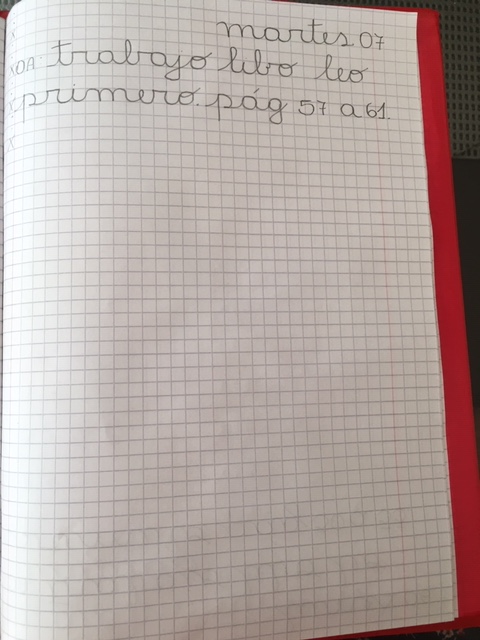 martes 07
x OA: trabajo libro leo
x primero. pág 57 a 61.
x